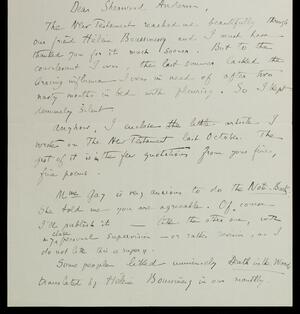 Dear Sherwood Anderson,
The New Testament reached me beautifully through
our friend Hélène Boussinesq and I must have
thanked you for it much sooner. But to the
convalescent I was, the last summer lacked the
bracing I was in need of after two
nasty months in bed with pleurisy. So I kept
silent
Anyhow, I enclose the little article I
wrote on The New Testament last October. The
best of it is in the few quotations from your fine,
fine poems.
Mme Gay is very anxious to do the Note-Book
She told me you are agreeable. Of course
I'll publish it — like the other one, with
my close personal supervision — or rather revision, as I
do not like the
Some people liked immensely Death in the Woods
translated by Hélène Boussinesq in our monthly.